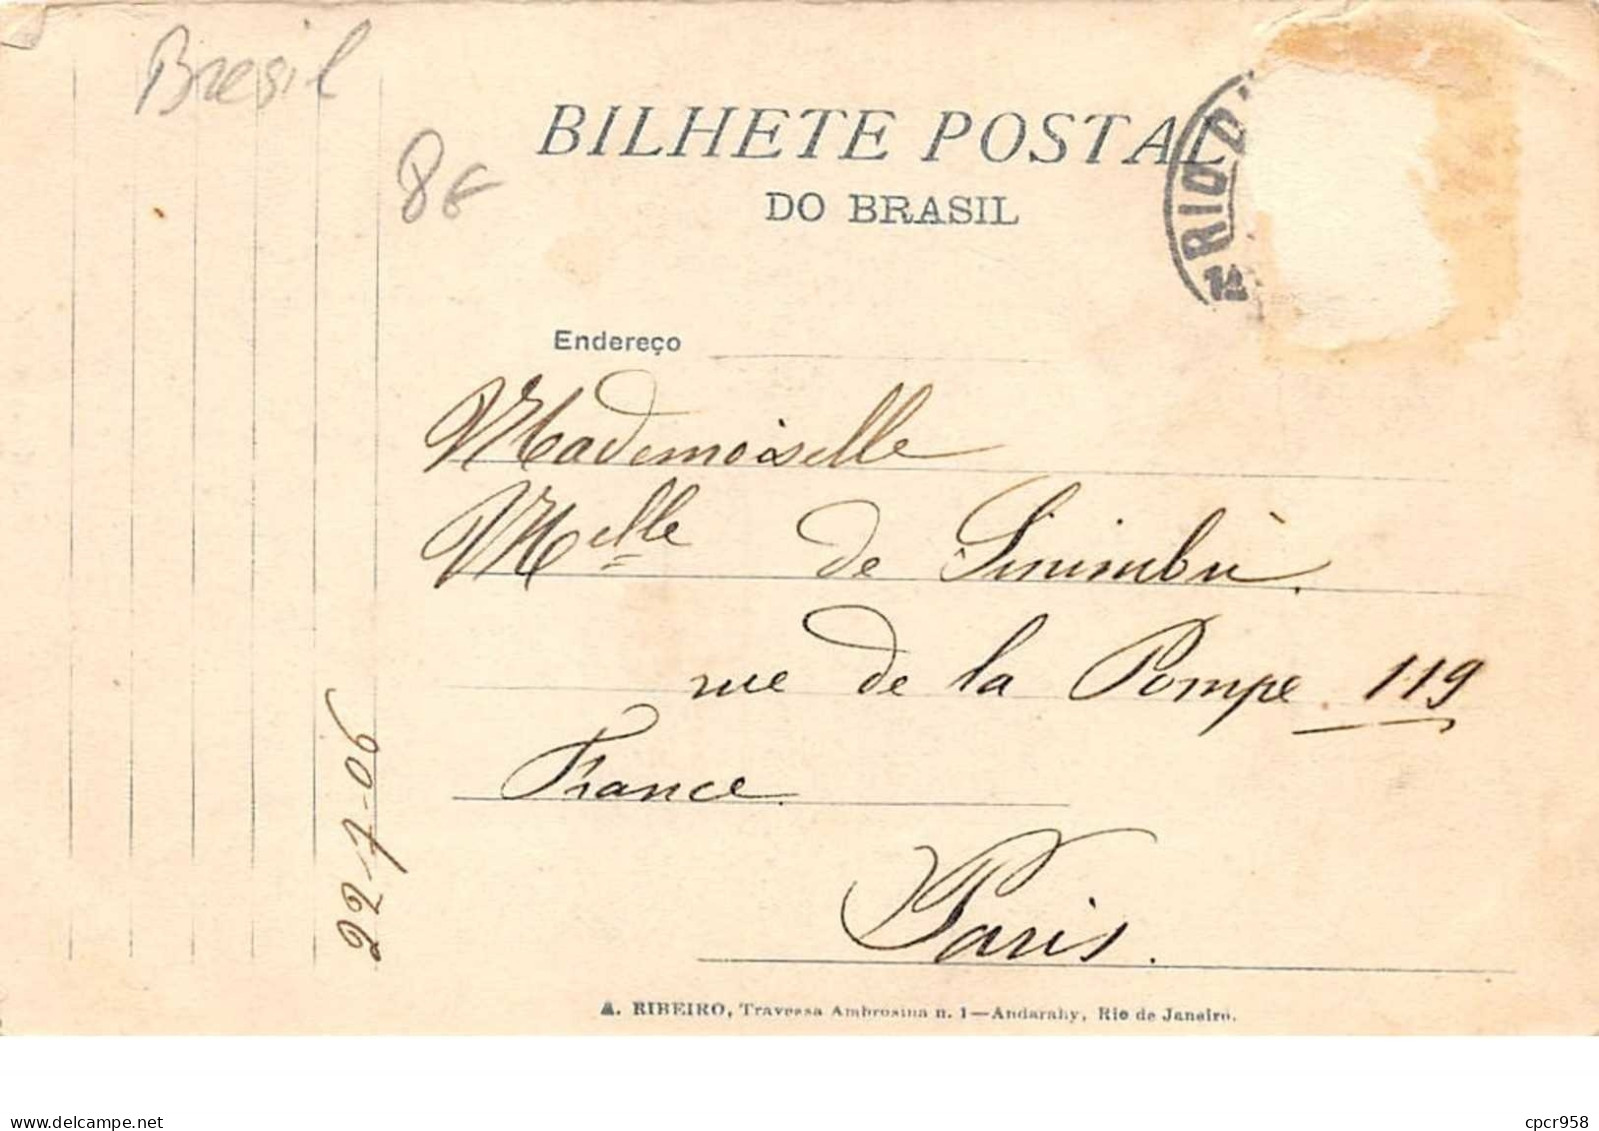 Bresil
8€
BILHETE POSTAL
DO BRASIL
RIO D
1ª
Endereço
Mademoiselle
Melle de Sinimbù.
rue de la Pompe 119
France
Paris.
22-7-06
A. RIBEIRO, Travessa Ambrosina n. 1—Andarahy, Rio de Janeiro.
delcampe.net
cpcr958